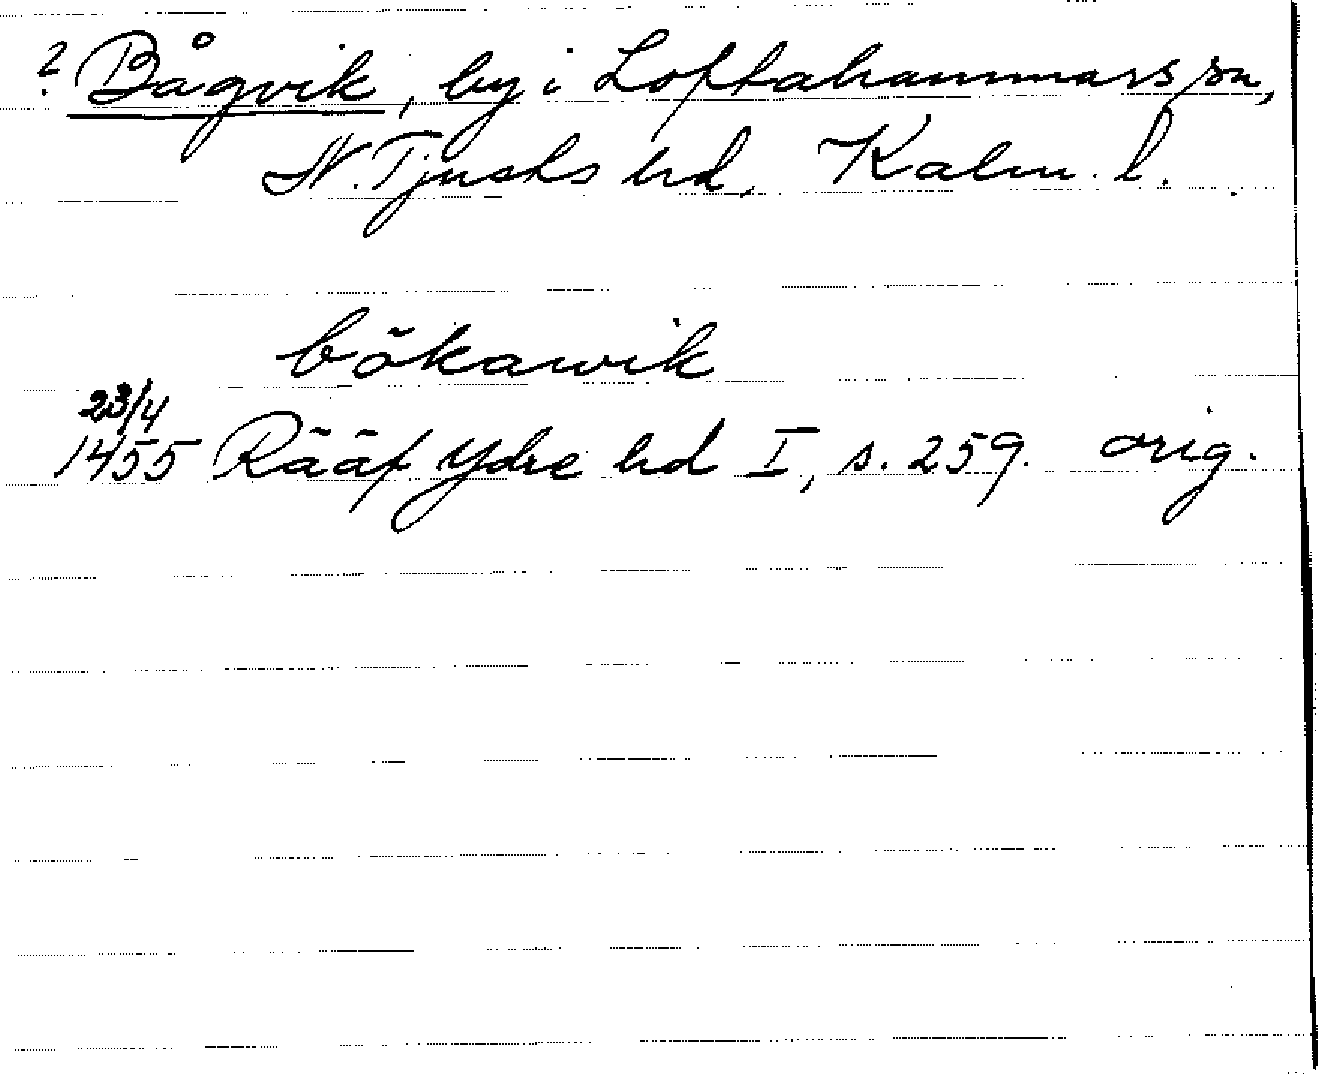 ? Bågvik, by i Loftahammars sn,
N. Tjusts hd, Kalm. l.
bökawik
23/4
1455 Rääf Ydre hd I, s. 259. orig.